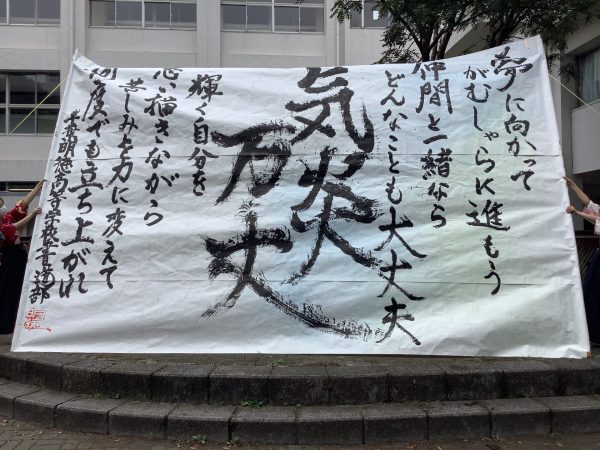 夢に向かって
がむしゃらに進もう
仲間と一緒なら
どんなことも大丈夫
気炎
万丈
輝く自分を
思い描きながら
苦しみを力に変えて
何度でも立ち上がれ
千葉明徳高等学校書道部